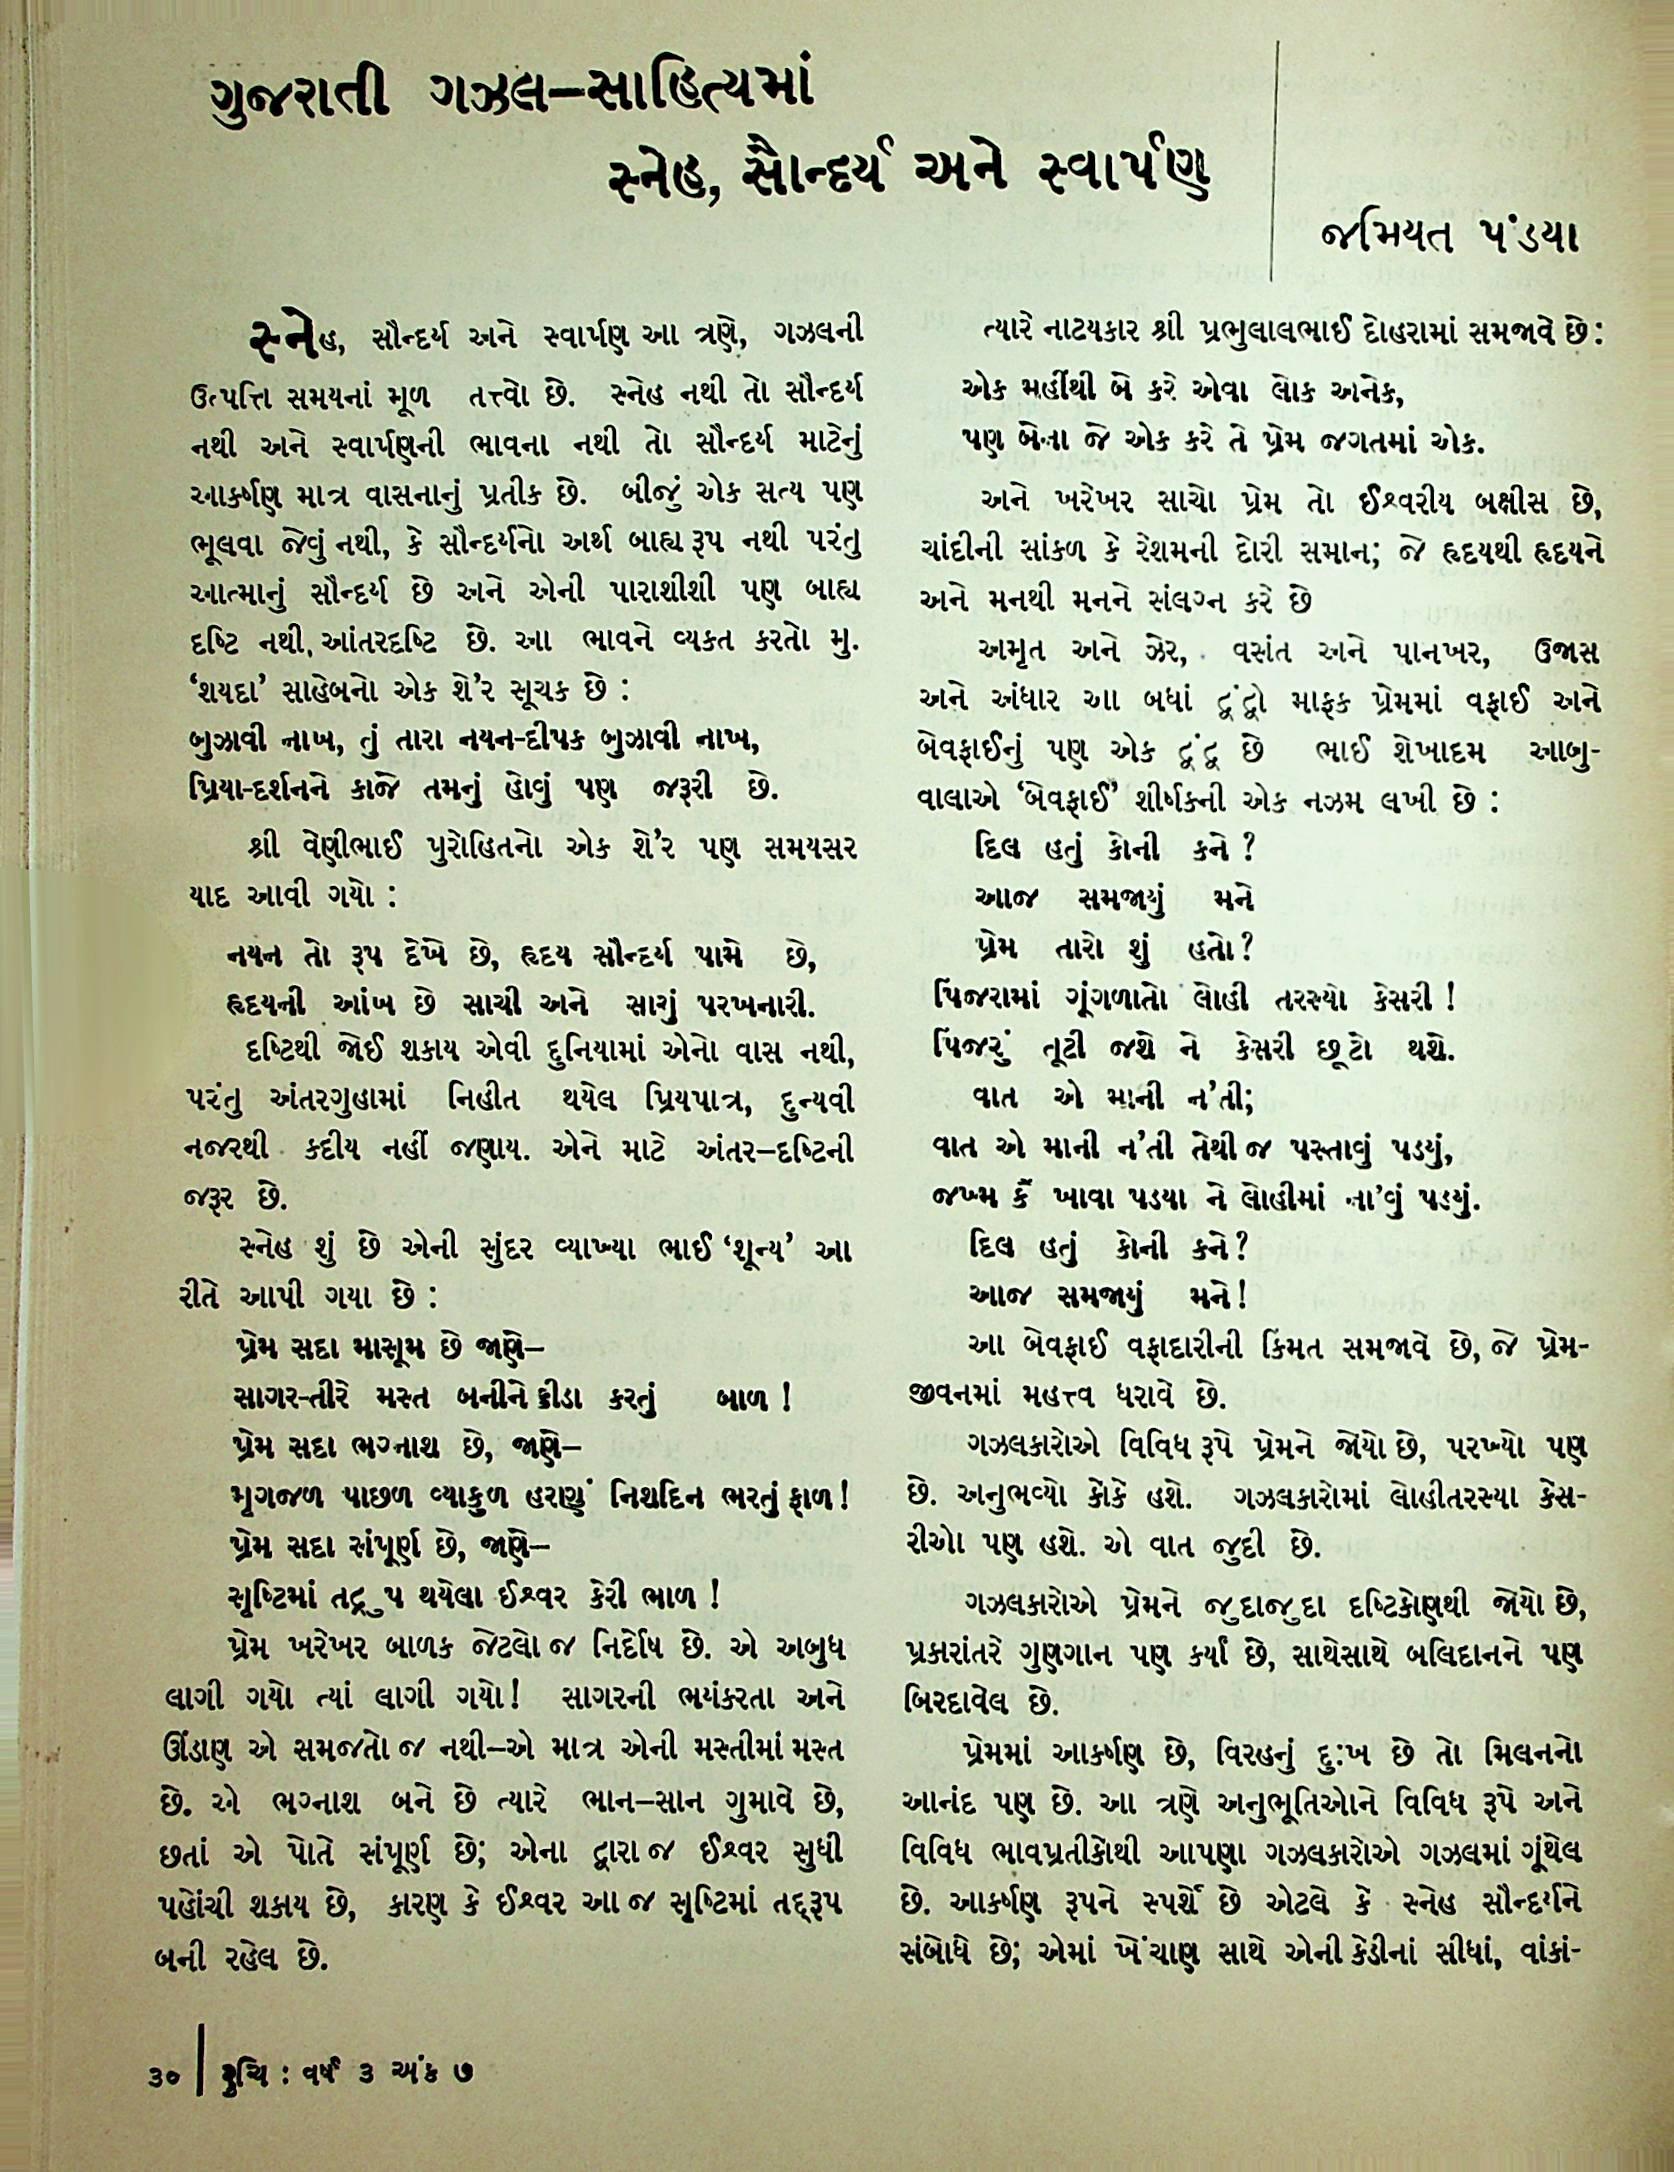 ગુજરાતી ગઝલ–સાહિત્યમાં
સ્નેહ, સૌન્દર્ય અને સ્વાર્પણ
જમિયત પંડયા
સ્નેહ, સૌન્દર્ય અને સ્વાર્પણ આ ત્રણે, ગઝલની
ઉત્પત્તિ સમયનાં મૂળ તત્ત્વો છે. સ્નેહ નથી તો સૌન્દર્ય
નથી અને સ્વાર્પણની ભાવના નથી તો સૌન્દર્ય માટેનું
આકર્ષણ માત્ર વાસનાનું પ્રતીક છે. બીજું એક સત્ય પણ
ભૂલવા જેવું નથી, કે સૌન્દર્યનો અર્થ બાહ્ય રૂપ નથી પરંતુ
આત્માનું સૌન્દર્ય છે અને એની પારાશીશી પણ બાહ્ય
દષ્ટિ નથી, આંતરદષ્ટિ છે. આ ભાવને વ્યકત કરતો મુ.
‘શયદા’ સાહેબનો એક શે’ર સૂચક છે :
બુઝાવી નાખ, તું તારા નયન-દીપક બુઝાવી નાખ,
પ્રિયા-દર્શનને કાજે તમનું હોવું પણ જરૂરી છે.
શ્રી વેણીભાઈ પુરોહિતનો એક શે’ર પણ સમયસર
યાદ આવી ગયો :
નયન તો રૂપ દેખે છે, હૃદય સૌન્દર્ય પામે છે,
હૃદયની આંખ છે સાચી અને સારું પરખનારી.
દષ્ટિથી જોઈ શકાય એવી દુનિયામાં એનો વાસ નથી,
પરંતુ અંતરગુહામાં નિહીત થયેલ પ્રિયપાત્ર, દુન્યવી
નજરથી કદીય નહીં જણાય. એને માટે અંતર–દષ્ટિની
જરૂર છે.
સ્નેહ શું છે એની સુંદર વ્યાખ્યા ભાઈ ‘શૂન્ય’ આ
રીતે આપી ગયા છે :
પ્રેમ સદા માસૂમ છે જાણે–
સાગર-તીરે મસ્ત બનીને ક્રીડા કરતું બાળ !
પ્રેમ સદા ભગ્નાશ છે, જાણે–
મૃગજળ પાછળ વ્યાકુળ હરણું નિશદિન ભરતું ફાળ!
પ્રેમ સદા સંપૂર્ણ છે, જાણે–
સૃષ્ટિમાં તદ્રુપ થયેલા ઈશ્વર કેરી ભાળ !
પ્રેમ ખરેખર બાળક જેટલો જ નિર્દોષ છે. એ અબુધ
લાગી ગયો ત્યાં લાગી ગયો! સાગરની ભયંકરતા અને
ઊંડાણ એ સમજતો જ નથી–એ માત્ર એની મસ્તીમાં મસ્ત
છે. એ ભગ્નાશ બને છે ત્યારે ભાન–સાન ગુમાવે છે,
છતાં એ પોતે સંપૂર્ણ છે; એના દ્વારા જ ઈશ્વર સુધી
પહોંચી શકાય છે, કારણ કે ઈશ્વર આ જ સૃષ્ટિમાં તદ્‌રૂપ
બની રહેલ છે.
ત્યારે નાટયકાર શ્રી પ્રભુલાલભાઈ દોહરામાં સમજાવે છે :
એક મહીંથી બે કરે એવા લોક અનેક,
પણ બેના જે એક કરે તે પ્રેમ જગતમાં એક.
અને ખરેખર સાચો પ્રેમ તો ઈશ્વરીય બક્ષીસ છે,
ચાંદીની સાંકળ કે રેશમની દોરી સમાન; જે હૃદયથી હૃદયને
અને મનથી મનને સંલગ્ન કરે છે
અમૃત અને ઝેર, વસંત અને પાનખર, ઉજાસ
અને અંધાર આ બધાં દ્વંદ્વો માફક પ્રેમમાં વફાઈ અને
બેવફાઈનું પણ એક દ્વંદ્વ છે ભાઈ શેખાદમ આબુ-
વાલાએ ‘બેવફાઈ’ શીર્ષકની એક નઝમ લખી છે :
દિલ હતું કોની કને ?
આજ સમજાયું મને
પ્રેમ તારો શું હતો ?
પિંજરામાં ગૂંગળાતો લોહી તરસ્યો કેસરી !
પિંજરું તૂટી જશે ને કેસરી છૂટો થશે.
વાત એ માની ન’તી;
વાત એ માની ન’તી તેથી જ પસ્તાવું પડયું,
જખ્મ કૈં ખાવા પડયા ને લોહીમાં ના’વું પડયું.
દિલ હતું કોની કને ?
આજ સમજાયું મને !
આ બેવફાઈ વફાદારીની કિંમત સમજાવે છે, જે પ્રેમ-
જીવનમાં મહત્ત્વ ધરાવે છે.
ગઝલકારોએ વિવિધ રૂપે પ્રેમને જોયો છે, પરખ્યો પણ
છે. અનુભવ્યો કોંકે હશે. ગઝલકારોમાં લોહીતરસ્યા કેસ-
રીઓ પણ હશે. એ વાત જુદી છે.
ગઝલકારોએ પ્રેમને જુદાજુદા દષ્ટિકોણથી જોયો છે,
પ્રકારાંતરે ગુણગાન પણ કર્યાં છે, સાથેસાથે બલિદાનને પણ
બિરદાવેલ છે.
પ્રેમમાં આકર્ષણ છે, વિરહનું દુઃખ છે તો મિલનનો
આનંદ પણ છે. આ ત્રણે અનુભૂતિઓને વિવિધ રૂપે અને
વિવિધ ભાવપ્રતીકોથી આપણા ગઝલકારોએ ગઝલમાં ગૂંથેલ
છે. આકર્ષણ રૂપને સ્પર્શે છે એટલે કે સ્નેહ સૌન્દર્યને
સંબોધે છે; એમાં ખેંચાણ સાથે એની કેડીનાં સીધાં, વાંકાં-
૩૦ | રુચિ : વર્ષ ૩ અંક ૭